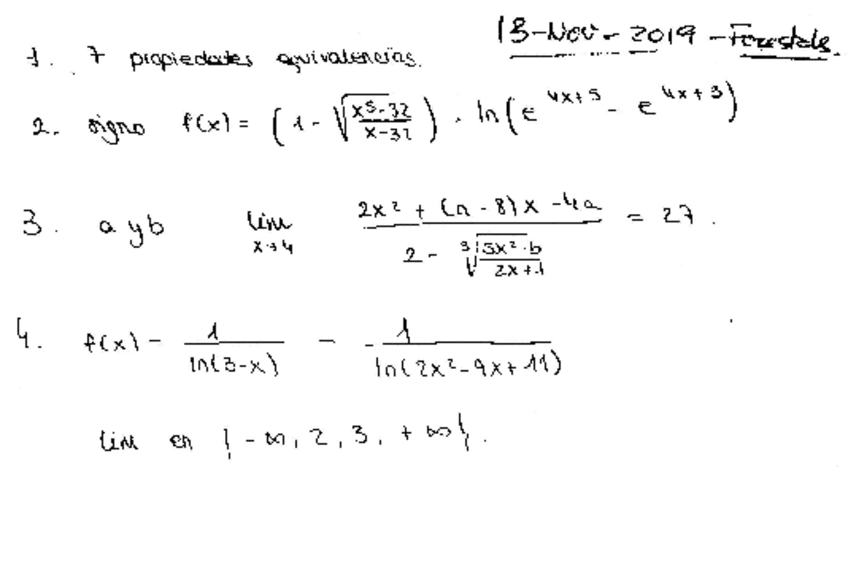 13-Nov-2019-Forestales.
1. 7 propiedades equivalencias.
2. signo f(x) = (1 - √((x^5-32)/(x-32))) · ln(e^(4x+5) - e^(4x+3))
3. a y b lim x→4 (2x² + (a-8)x - 4a)/(2 - ∛((3x²·b)/(2x+1))) = 27.
4. f(x) - 1/ln(3-x) - -1/ln(2x²-9x+11)
lim en {-∞, 2, 3, +∞}.